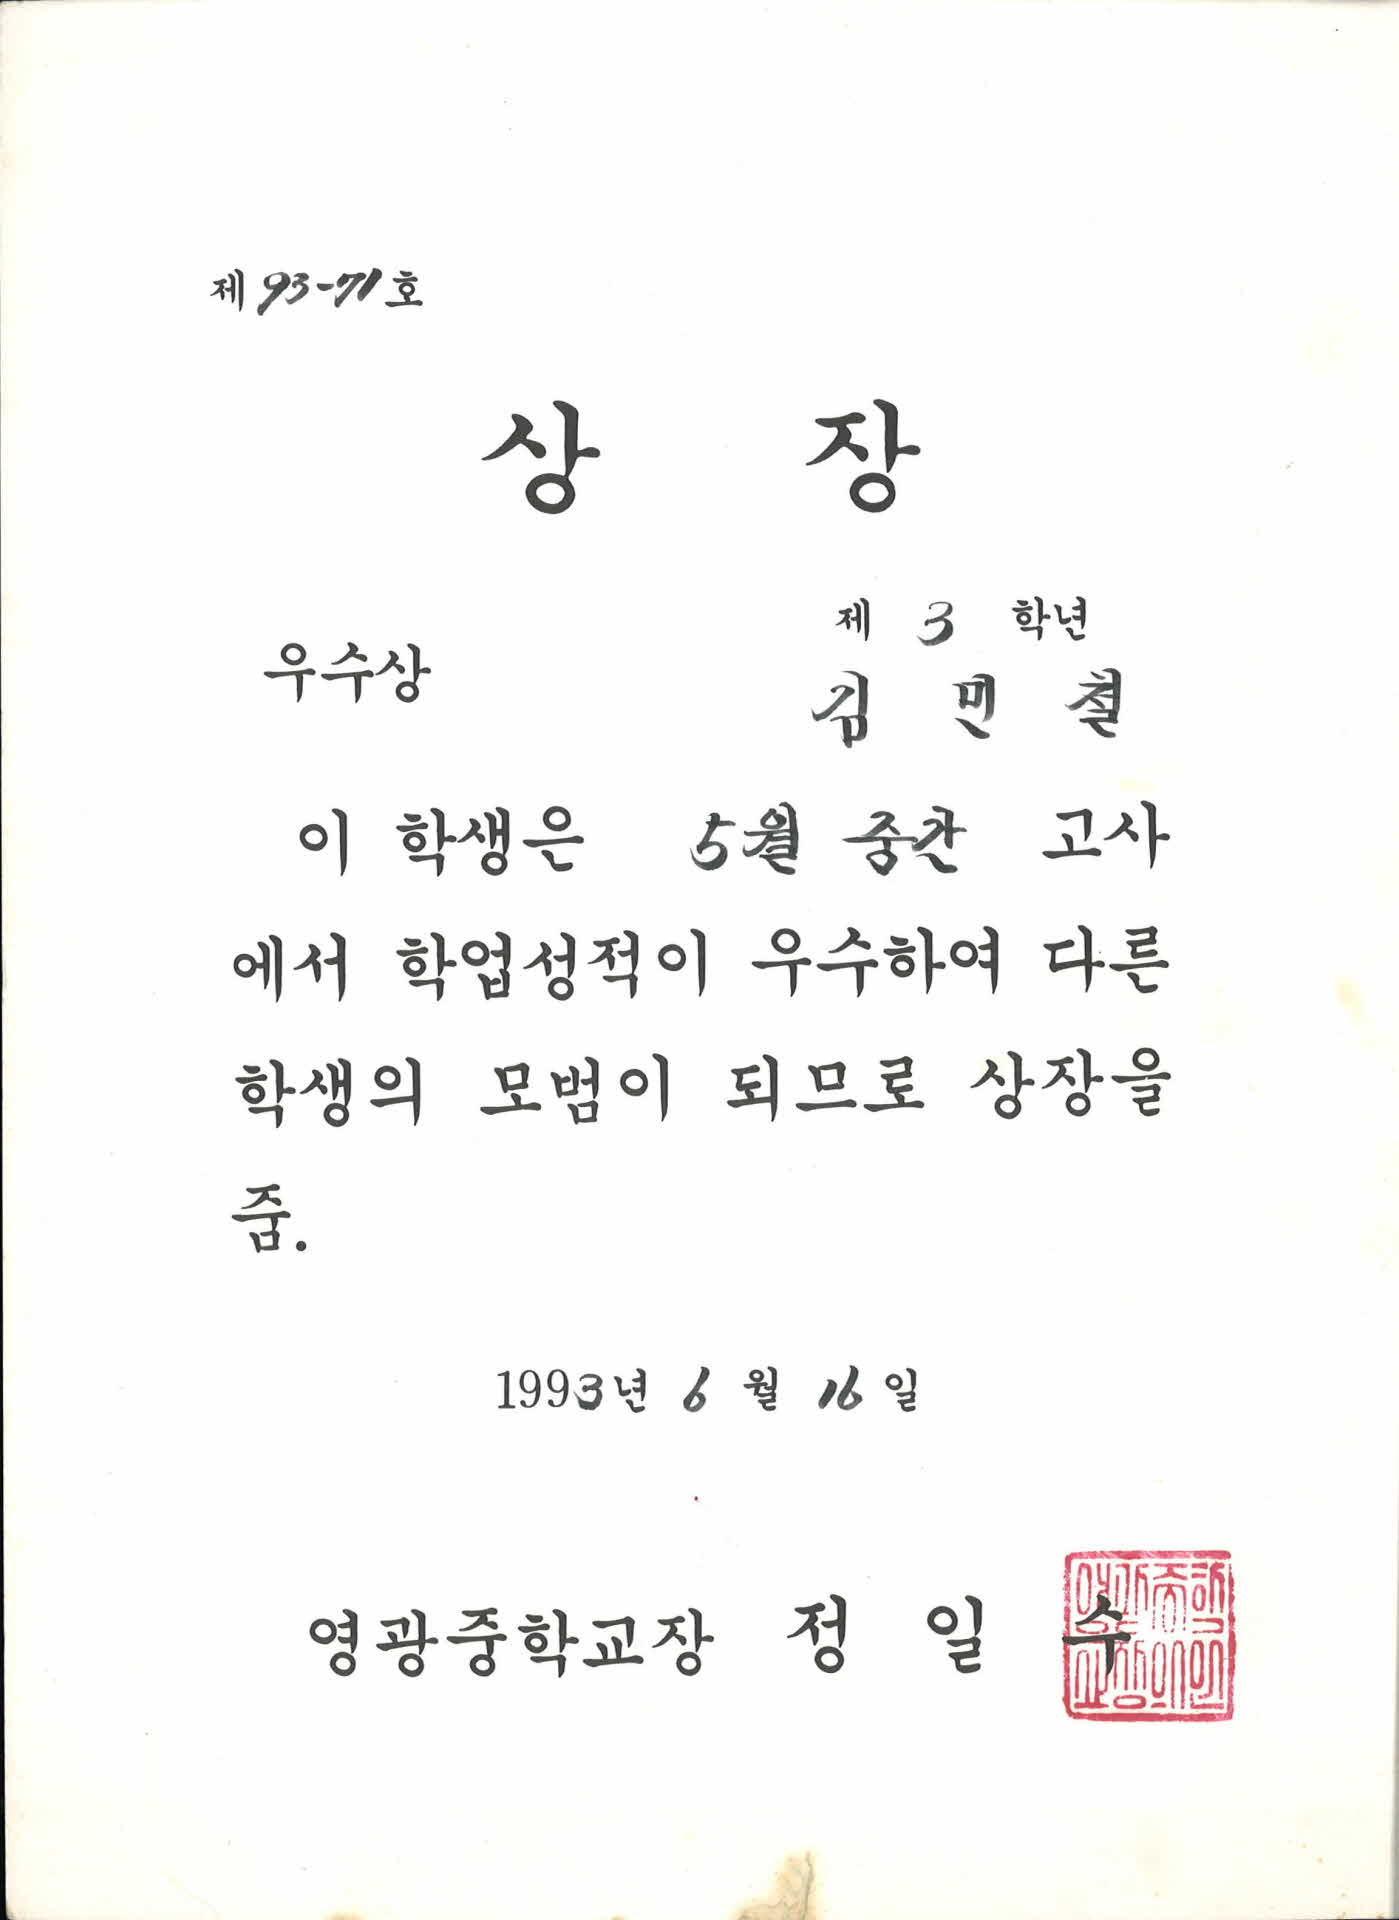 제 93-71 호
상 장
제 3 학년
우수상
김 민 철
이 학생은 5월 중간 고사
에서 학업성적이 우수하여 다른
학생의 모범이 되므로 상장을
줌.
1993년 6월 16일
영광중학교장 정 일 수
영광중학
교장의인